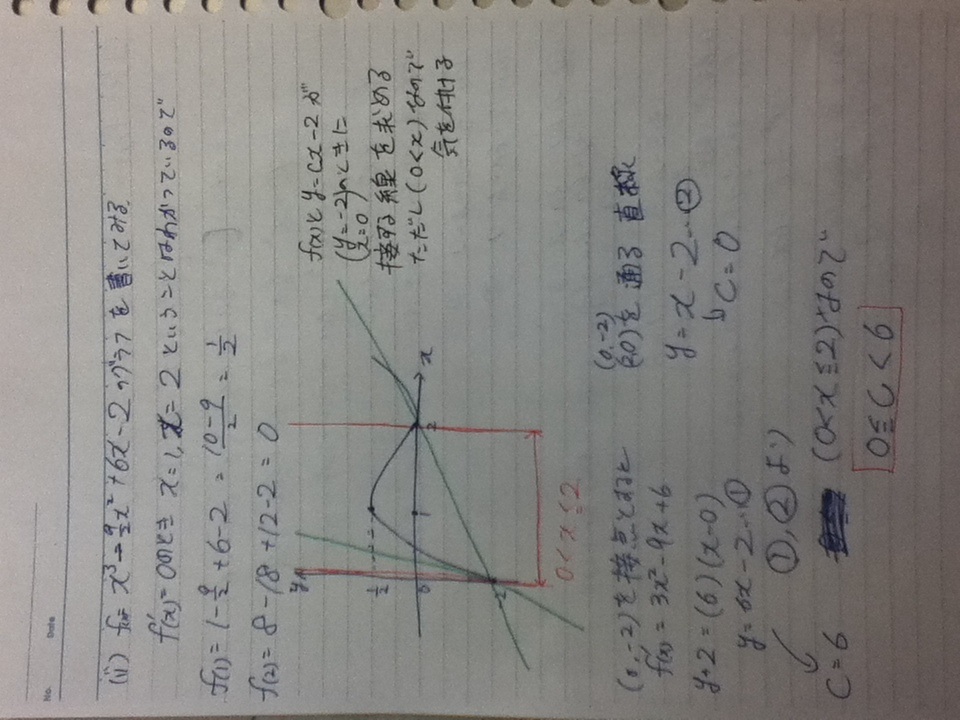 No.
Date
(ii) f(x)= x³-9/2x²+6x-2のグラフを書いてみる。
f'(x)=0のとき x=1, x=2 ということはわかっているので
f(1)= 1-9/2+6-2 = (10-9)/2 = 1/2
f(2)= 8-18+12-2=0
y
1/2
0
1
2
x
-2
0<x≦2
f(x)と y=cx-2 が
(y=-2, x=0)のときに
接する線を求める
ただし(0<x)なので
気を付ける
(0,-2)を接点とすると
f'(x)= 3x²-9x+6
y+2=(6)(x-0)
y=6x-2…①
C=6
(0,-2)
(2,0)を通る直線
y=x-2…②
↳ C=0
①,②より
(0<x≦2)なので
0≦C<6